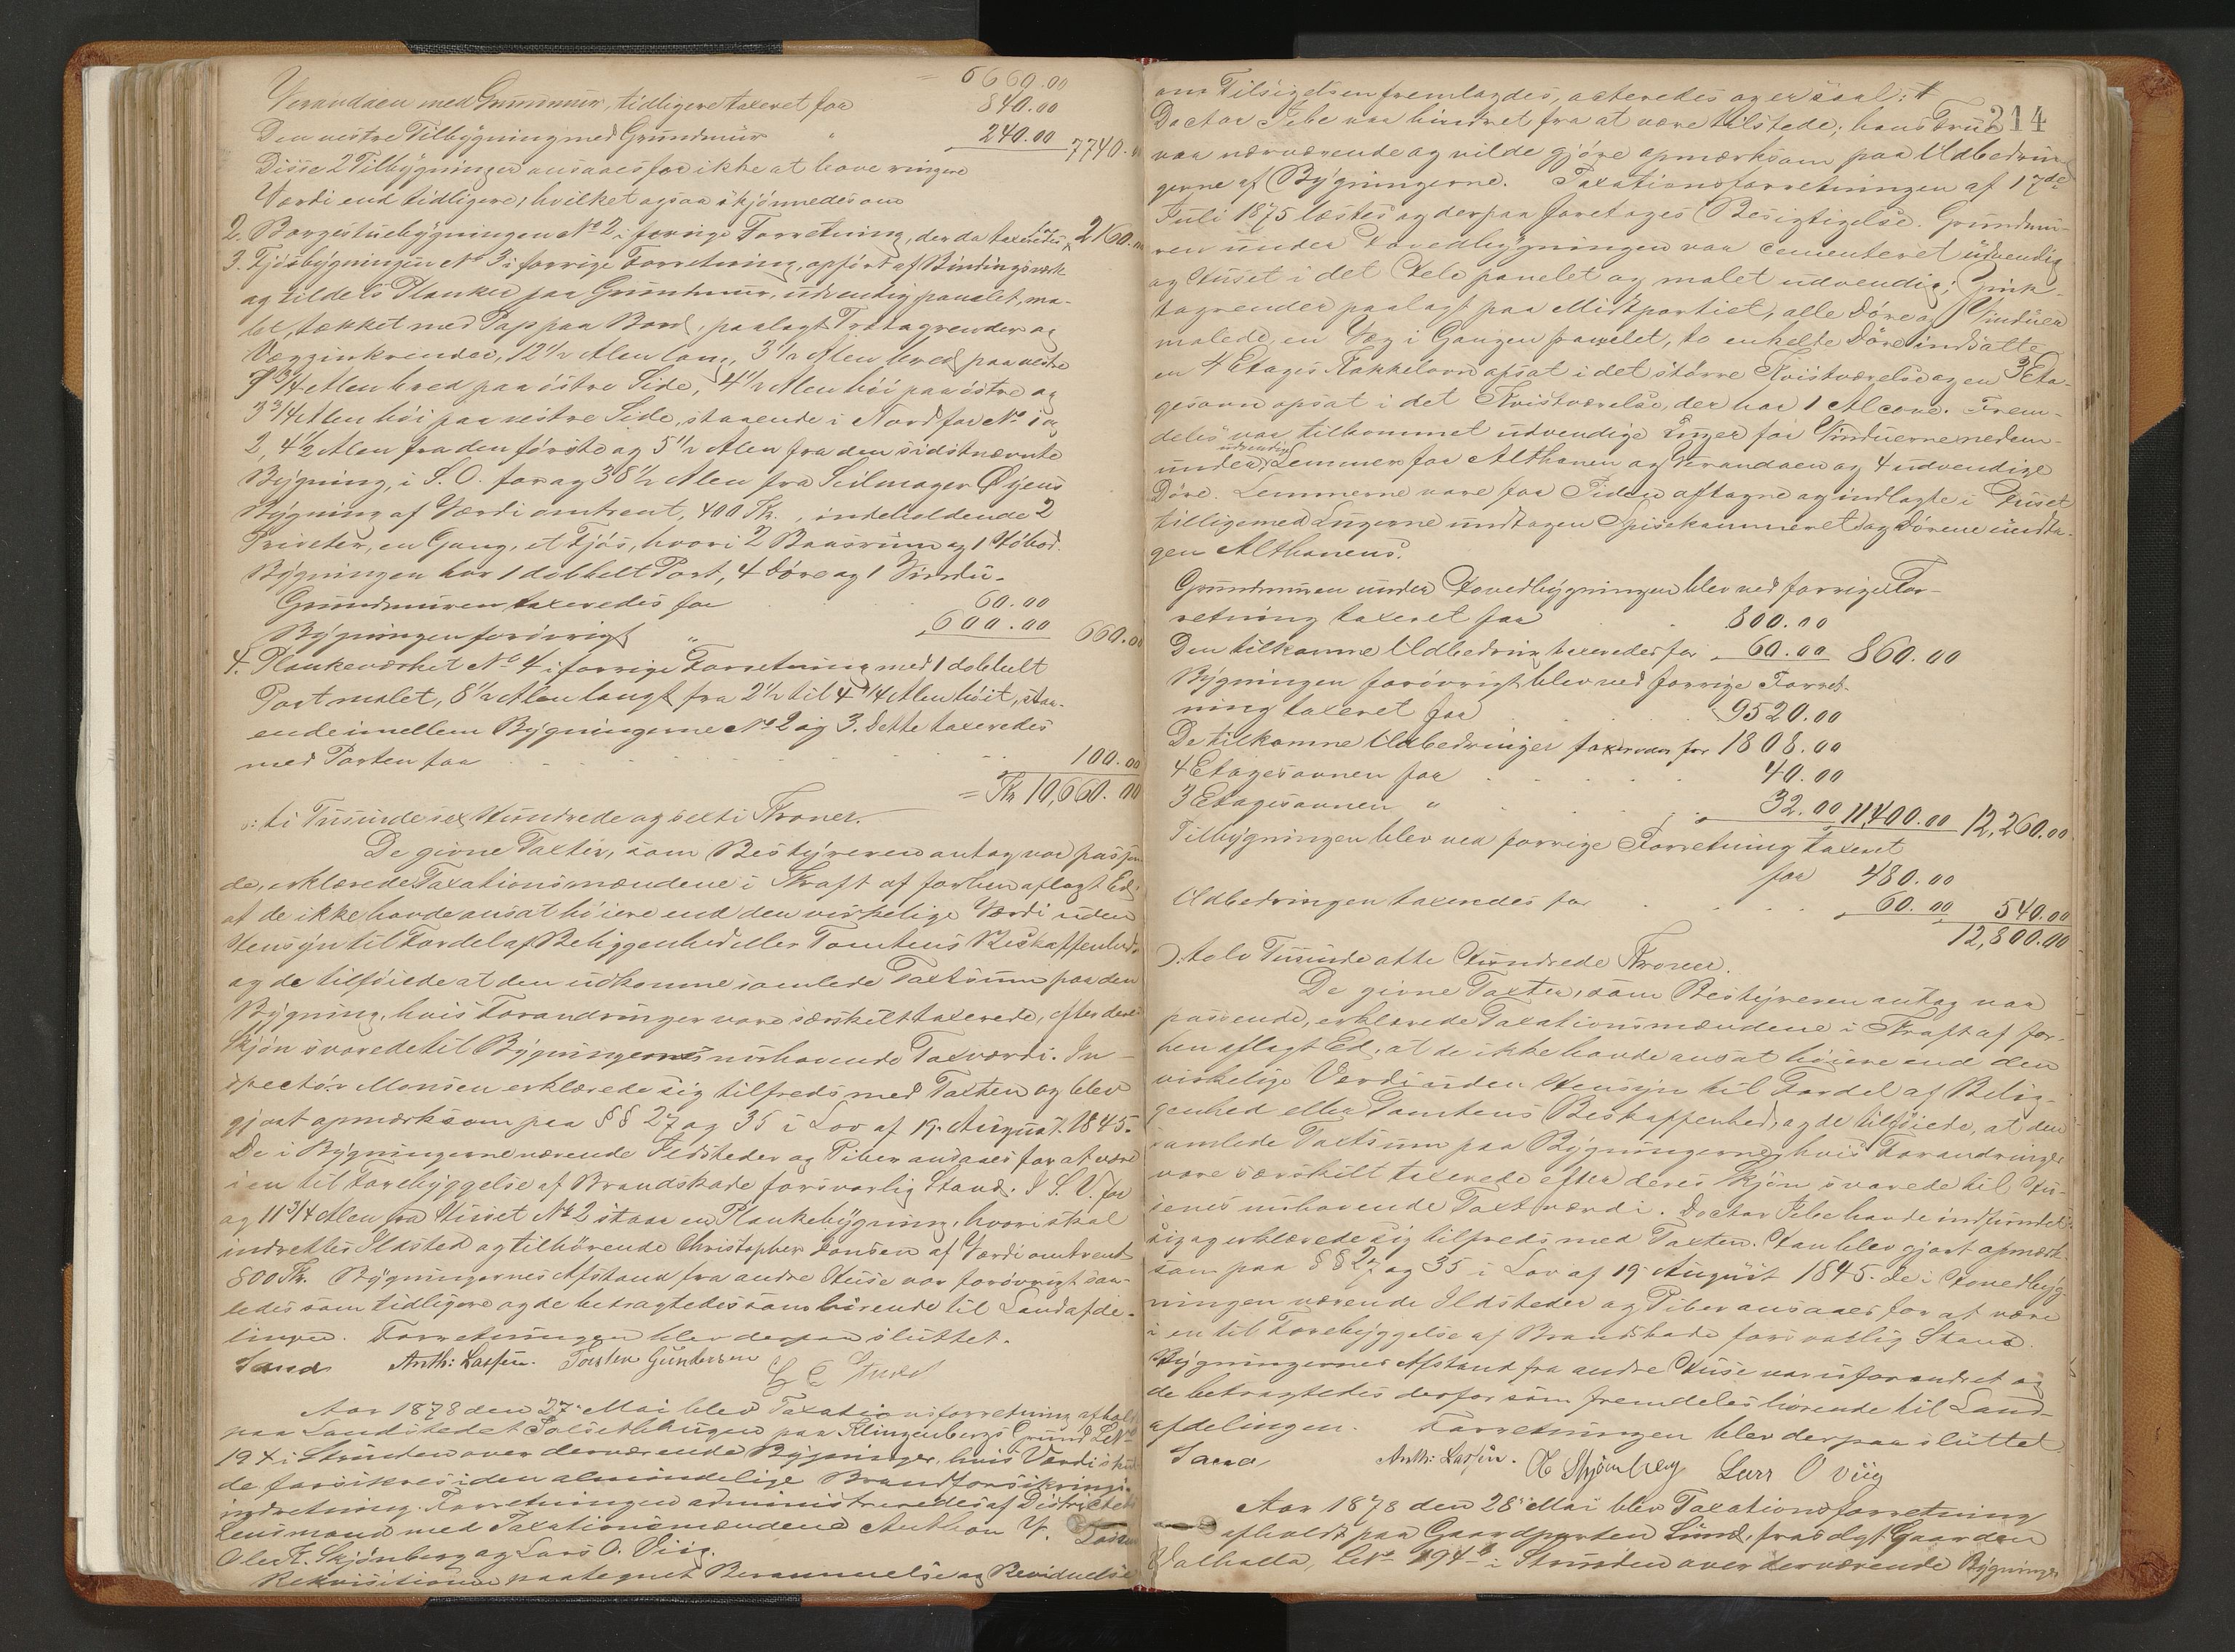 = 6660.00
Verandaen med Grundmur, tidligere taxeret for 840.00
Den vestre Tilbygning med Grundmur " 240.00 7740.00
Disse 2 Tilbygninger ansaaes for ikke at have ringere
Værdi end tidligere, hvilket ogsaa skjönnedes om
2. Borgestuebygningen No 2 i forrige Forretning, der da taxeredes for 2160.00
3. Fjösbygningen No 3 i forrige Forretning, opfört af Bindingsværk
og tildels Planker paa Grundmur, udvendig panelet, ma-
let, tækket med Pap paa Bord, paalagt Trætagrender og
Vægzinkrender, 12 1/2 Alen lang, 3 1/2 Alen bred paa vestre
7 3/4 Alen bred paa östre Side, 4 1/2 Alen höi paa östre og
3 3/4 Alen höi paa vestre Side, staaende i Nord for No 1 og
2, 4 1/2 Alen fra den förste og 5 1/2 Alen fra den sidstnævnte
Bygning, i S.O. for og 38 1/2 Alen fra Seilmager Öyens
Bygning af Værdi omtrent, 400 Kr., indeholdende 2
Priveter, en Gang, et Fjös, hvori 2 Baasrum og 1 Höbod.
Bygningen har 1 dobbelt Port, 4 Döre og 1 Vindu.
Grundmuren taxeredes for 60.00
Bygningen forövrigt " 600.00 660.00
4. Plankeværket No 4 i forrige Forretning med 1 dobbelt
Port malet, 8 1/2 Alen langt fra 2 1/2 til 4 3/4 Alen höit, staa-
ende imellem Bygningerne No 2 og 3. Dette taxeredes
med Porten for 100.00
= Kr 10,660.00
o: ti Tusinde sex Hundrede og sexti Kroner.
De givne Taxter, som Bestyreren antog var passen-
de, erklærede Taxationsmændene i Kraft af forhen aflagt Ed,
at de ikke havde ansat höiere end den virkelige Værdi uden
Hensyn til Fordel af Beliggenhed eller Tomtens Beskaffenhed,
og de tilföiede at den udkomne samlede Taxtsum paa den
Bygning, hvis Forandringer vare særskilt taxerede, efter deres
Skjön svarede til Bygningernes nuhavende Taxværdi. In-
spectör Monsen erklærede sig tilfreds med Taxten og blev
gjort opmærksom paa §§ 27 og 35 i Lov af 19. August 1845.
De i Bygningerne værende Ildsteder og Piber ansaaes for at være
i en til Forebyggelse af Brandskade forsvarlig Stand. I S.V. for
og 11 3/4 Alen fra Huset No 2 staar en Plankebygning, hvori skal
indrettes Ildsted og tilhörende Christopher Hansen af Værdi omtrent
800 Kr. Bygningernes Afstand fra andre Huse var forövrigt saa-
ledes som tidligere og de betragtedes som hörende til Landafde-
lingen. Forretningen blev derpaa sluttet.
Sand Anth: Larsen. Torsten Gundersen
Aar 1878 den 27. Mai blev Taxationsforretning afholdt
paa Landstedet Solsethhaugen paa Klingenbergs Grund Lit No
194 i Strinden over derværende Bygninger, hvis Værdi skul-
de forsikres i den almindelige Brandforsikrings-
indretning. Forretningen administreredes af Districtets
Lensmand med Taxationsmændene Anthon Y. Larsen
Ole K. Skjönberg og Lars O. Viig.
Rekvisitionen paategnet Berammelse og Bevidnelse
214
om Tilsigelsen fremlagdes, acteredes og er saal: #
Doctor Jebe var hindret fra at være tilstede; hans Frue
var nærværende og vilde gjöre opmærksom paa Udbedrin-
gerne af Bygningerne. Taxationsforretningen af 17de
Juli 1875 læstes og derpaa foretoges Besigtigelse. Grundmu-
ren under Hovedbygningen var cementeret udvendig
og Huset i det Hele panelet og malet udvendig; Zink-
tagrender paalagt paa Midtpartiet, alle Döre og Vinduer
malede, en Væg i Gangen panelet, to enkelte Döre indsatte
en 4 Etages Kakkelovn opsat i det större Kvistværelse og en 3 Eta-
gesovn opsat i det Kvistværelse, der har 1 Alcove. Frem-
deles var tilkommet udvendige Luger for Vinduerne neden-
under, udvendige Lemmer for Althanen og Verandaen og 4 udvendige
Döre. Lemmerne vare for Tiden aftagne og indlagte i Huset
tilligemed Lugerne undtagen Spisekammeret og Dörene undta-
gen Althanens.
Grundmuren under Hovedbygningen blev ved forrige For-
retning taxeret for 800.00
Den tilkomne Udbedring taxeredes for 60.00 860.00
Bygningen forövrigt blev ved forrige Forret-
ning taxeret for 9520.00
De tilkomne Udbedringer taxeredes for 1808.00
4 Etagesovnen for 40.00
3 Etagesovnen " 32.00 11,400.00 12,260.00
Tilbygningen blev ved forrige Forretning taxeret
for 480.00
Udbedringen taxeredes for 60.00 540.00
12,800.00
o: tolv Tusinde otte Hundrede Kroner.
De givne Taxter, som Bestyreren antog var
passende, erklærede Taxationsmændene i Kraft af for-
hen aflagt Ed, at de ikke havde ansat höiere end den
virkelige Værdi uden Hensyn til Fordel af Belig-
genhed eller Tomtens Beskaffenhed, og de tilföiede, at den
samlede Taxtsum paa Bygningerne, hvis Forandringer
vare særskilt taxerede efter deres Skjön svarede til Hu-
senes nuhavende Taxtværdi. Doctor Jebe havde indfundet
sig og erklærede sig tilfreds med Taxten. Han blev gjort opmærk-
som paa §§ 27 og 35 i Lov af 19 August 1845. De i Hovedbyg-
ningen værende Ildsteder og Piber ansaaes for at være
i en til Forebyggelse af Brandskade forsvarlig Stand.
Bygningernes Afstand fra andre Huse var uforandret og
de betragtedes derfor som fremdeles hörende til Land-
afdelingen. Forretningen blev derpaa sluttet
Sand Anth: Larsen. O K Skjönberg Lars O Viig
Aar 1878 den 28. Mai blev Taxationsforretning
afholdt paa Gaardparten Lund, frasolgt Gaarden
Valhalla, Lit No 194 b i Strinden over derværende Bygninger